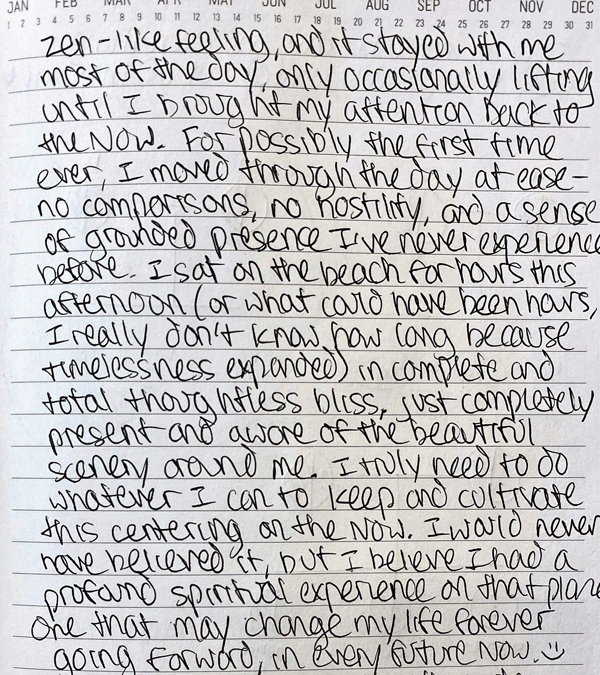 JAN FEB MAR APR MAY JUN JUL AUG SEP OCT NOV DEC
1 2 3 4 5 6 7 8 9 10 11 12 13 14 15 16 17 18 19 20 21 22 23 24 25 26 27 28 29 30 31
zen-like feeling, and it stayed with me
most of the day, only occasionally lifting
until I brought my attention back to
the Now. For possibly the first time
ever, I moved through the day at ease-
no comparisons, no hostility, and a sense
of grounded presence I've never experience
before. I sat on the beach for hours this
afternoon (or what could have been hours,
I really don't know how long because
timelessness expanded) in complete and
total thoughtless bliss, just completely
present and aware of the beautiful
scenery around me. I truly need to do
whatever I can to keep and cultivate
this centering on the Now. I would never
have believed it, but I believe I had a
profound spiritual experience on that plane
One that may change my life forever
going forward, in every future Now. :)